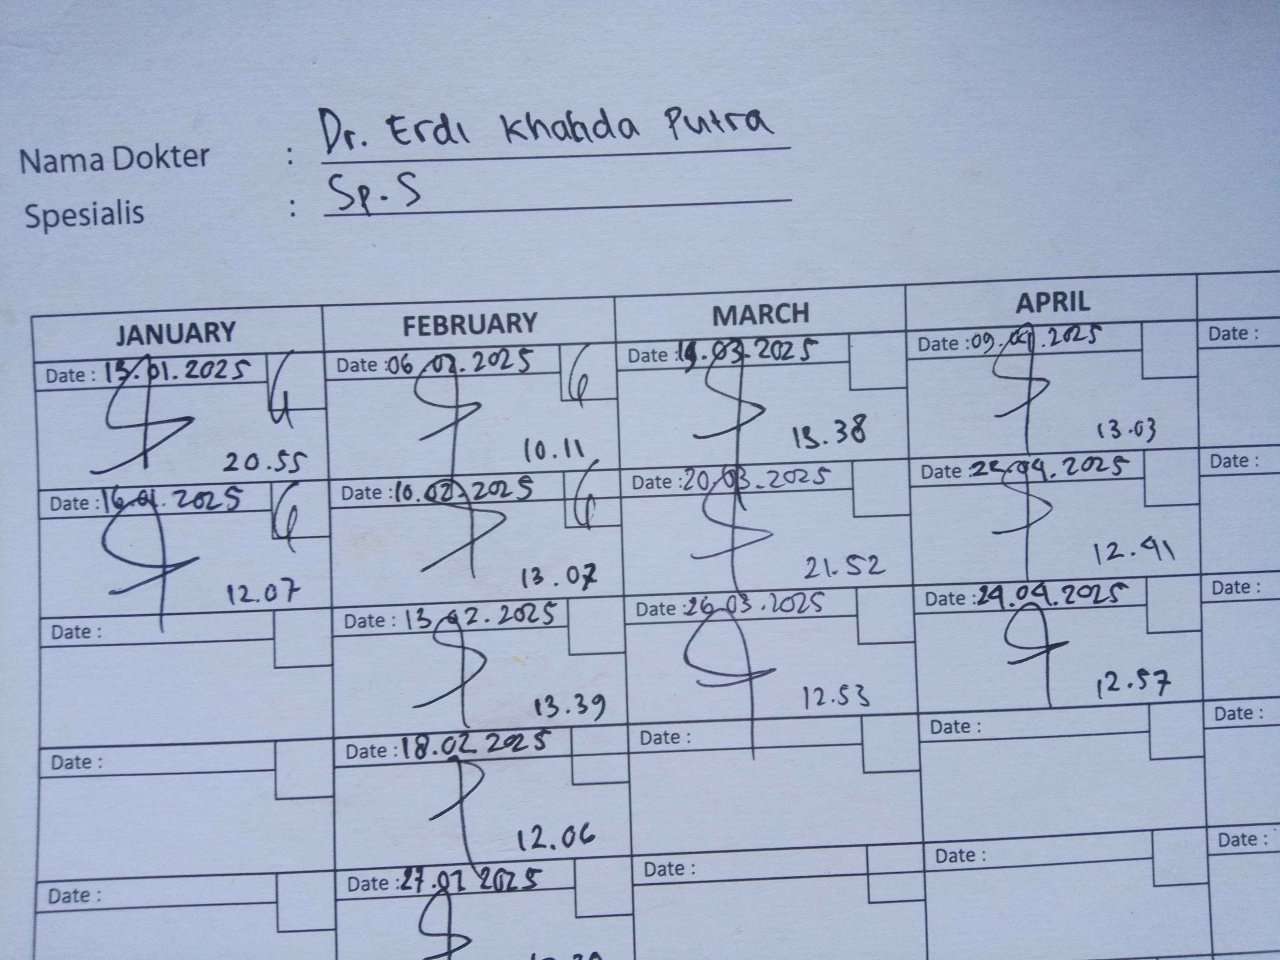 Nama Dokter : Dr. Erdi Khalida Putra
Spesialis : Sp.S
JANUARY FEBRUARY MARCH APRIL
Date : 13.01.2025 Date : 06.02.2025 Date : 14.03.2025 Date : 09.04.2025 Date :
20.55 10.11 13.38 13.03
Date : 16.01.2025 Date : 10.02.2025 Date : 20.03.2025 Date : 22.04.2025 Date :
12.07 13.07 21.52 12.41
Date : Date : 13.02.2025 Date : 26.03.2025 Date : 24.04.2025 Date :
13.39 12.53 12.57
Date : Date : 18.02 2025 Date : Date : Date :
12.06
Date : Date : 27.02 2025 Date : Date : Date :